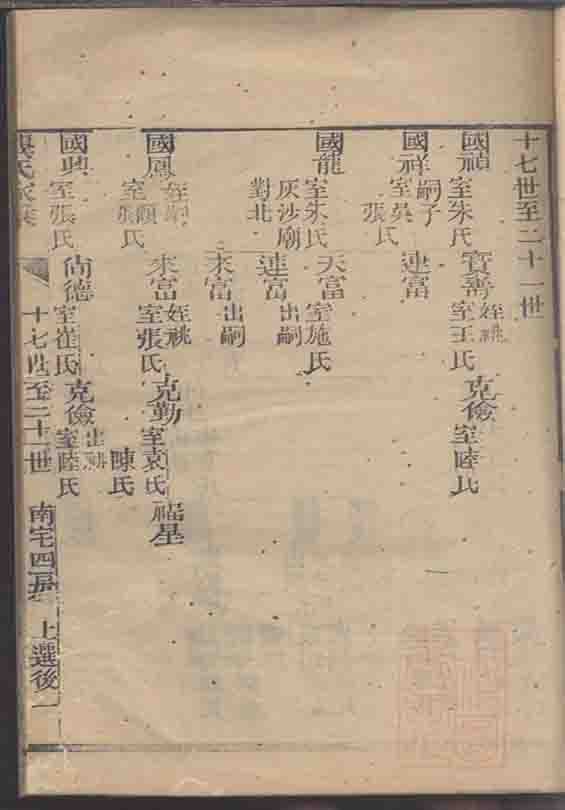 十七世至二十一世
國禎 室朱氏 寶壽 姪祧 室王氏 克儉 室陸氏
國祥 嗣子 室吳 張氏 連富
國龍 室朱氏 灰沙廟 對北 天富 室施氏
連富 出嗣
來富 出嗣
國鳳 姪嗣 室顧 張氏 來富 姪祧 室張氏 克勤 室袁氏 陳氏 福星
國興 室張氏 尚德 室崔氏 克儉 出祧 室陸氏
氏家乘 十七世至二十一世 南宅四房 上選後一